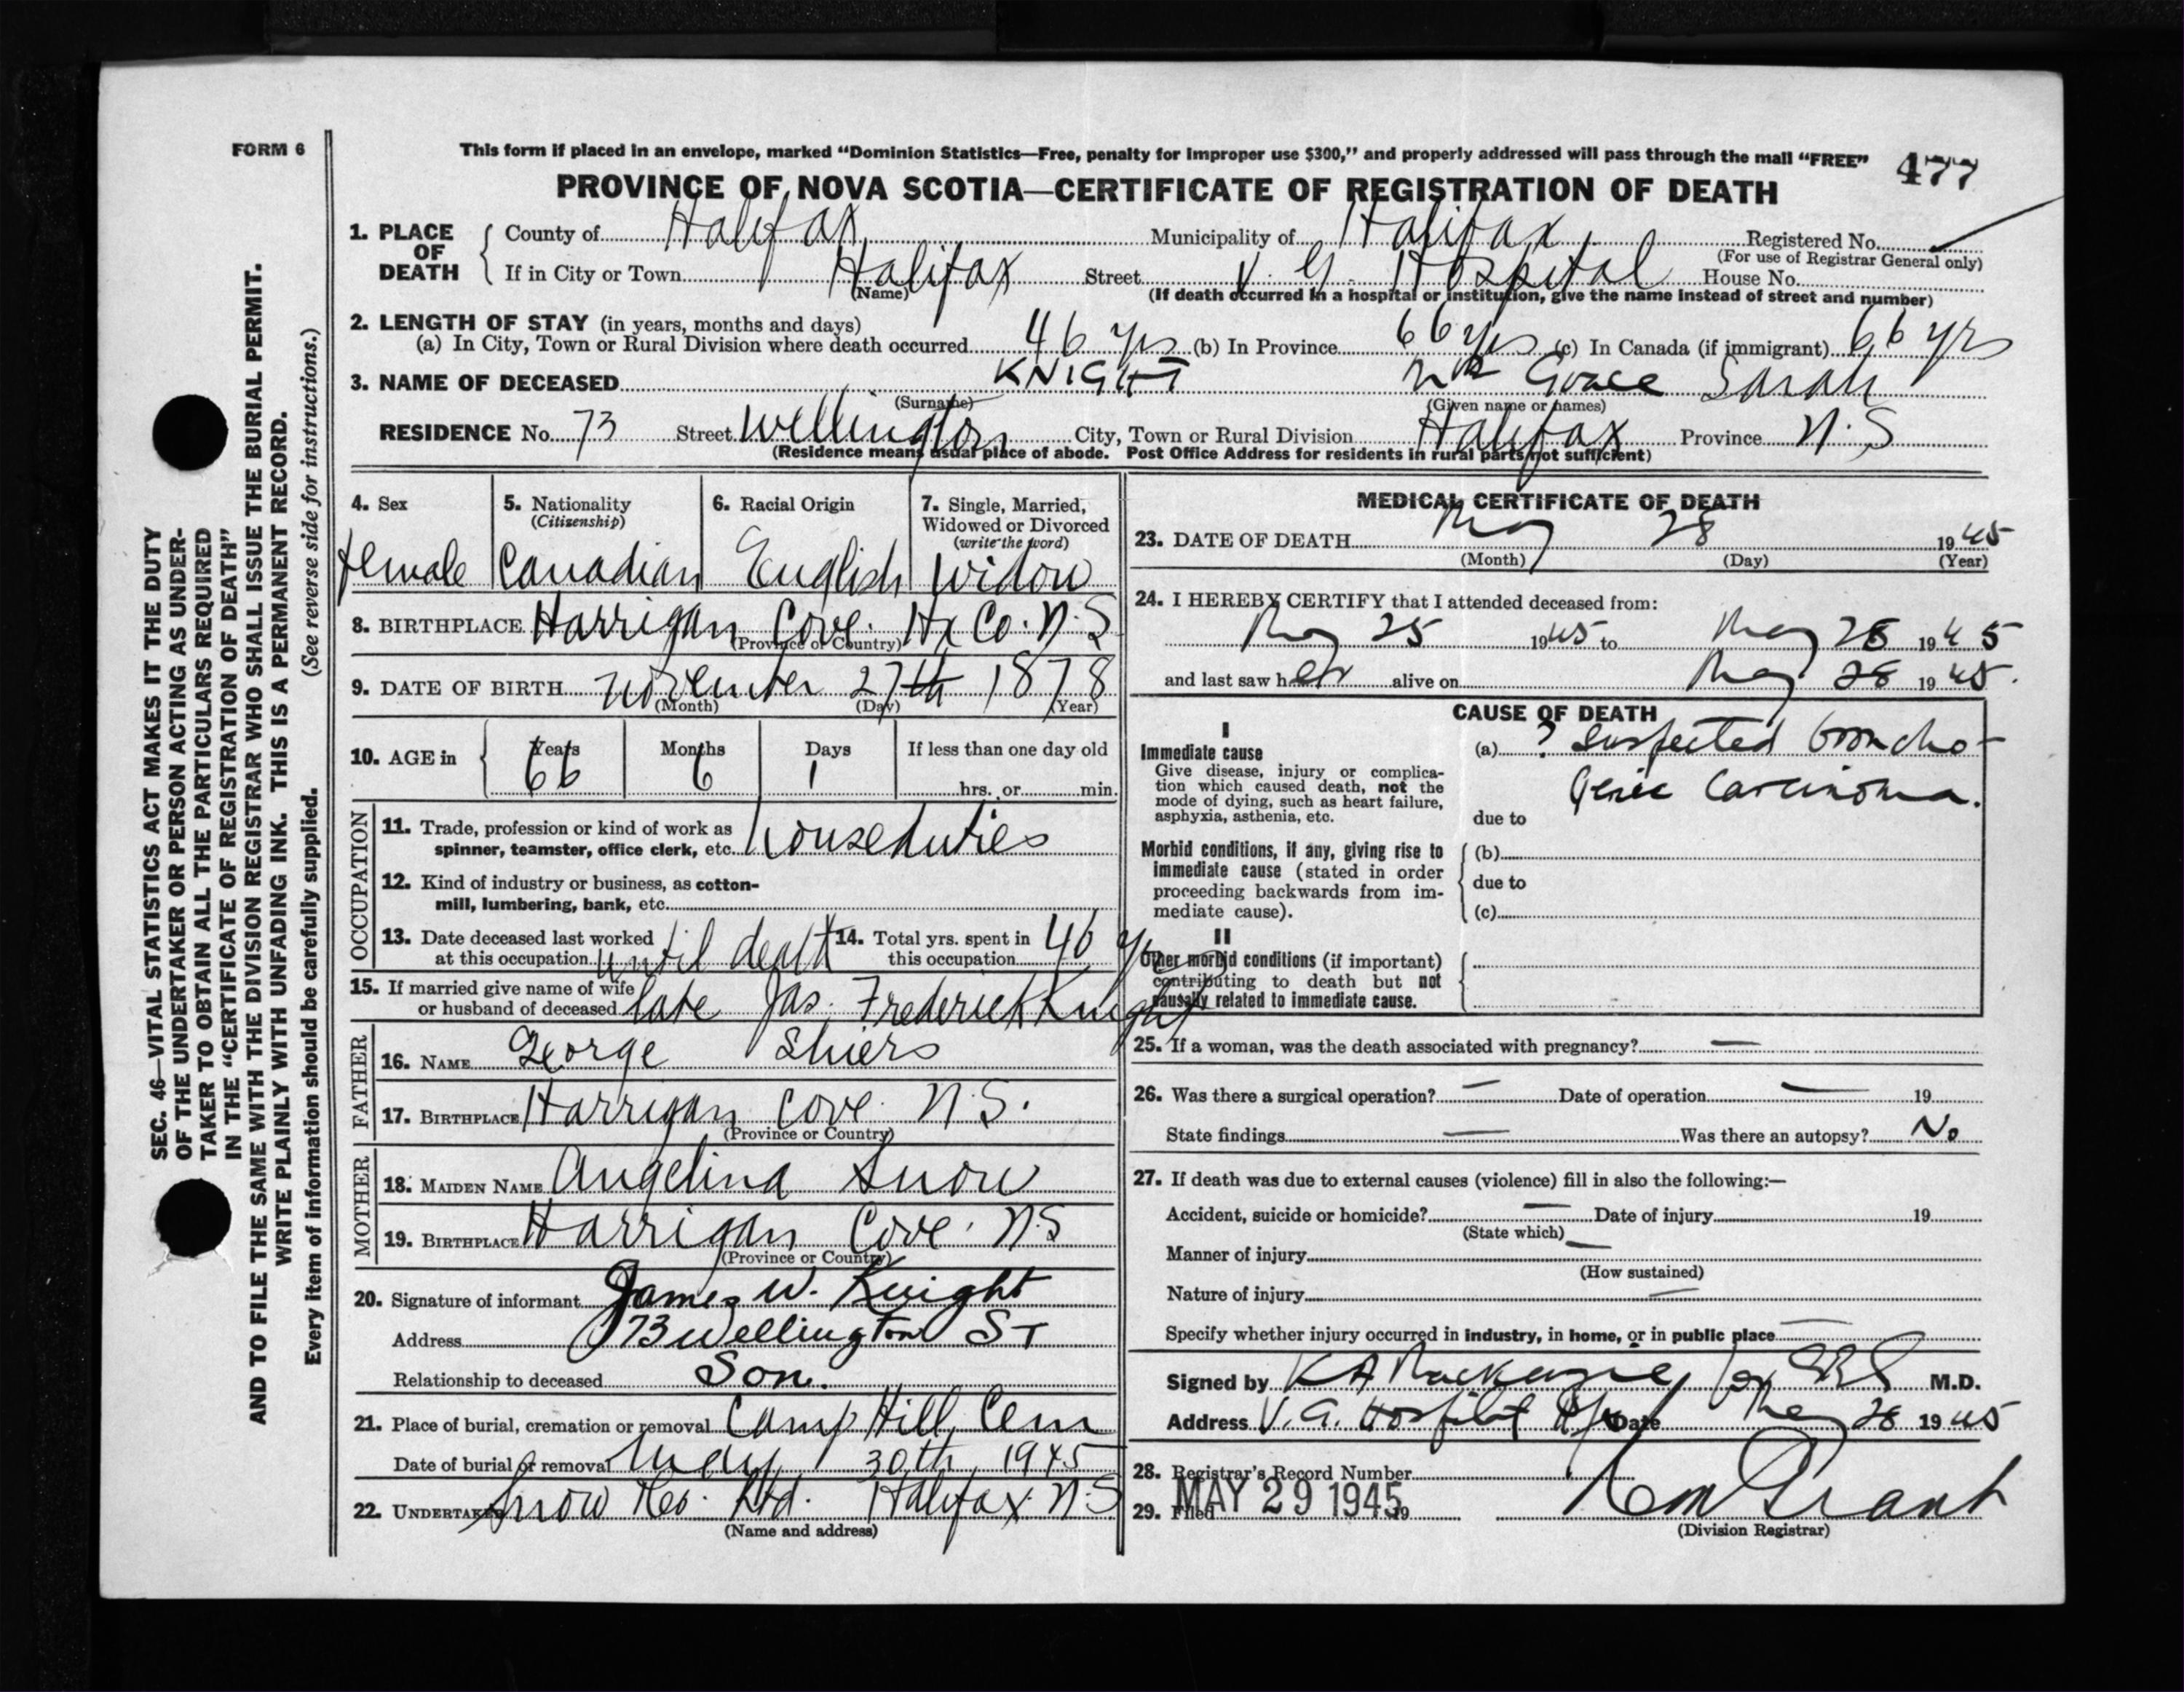 FORM 6
This form if placed in an envelope, marked “Dominion Statistics—Free, penalty for improper use $300,” and properly addressed will pass through the mail “FREE”
477
PROVINCE OF NOVA SCOTIA—CERTIFICATE OF REGISTRATION OF DEATH
1. PLACE OF DEATH
County of Halifax Municipality of Halifax Registered No.
(For use of Registrar General only)
If in City or Town Halifax Street V. G. Hospital House No.
(Name) (If death occurred in a hospital or institution, give the name instead of street and number)
2. LENGTH OF STAY (in years, months and days)
(a) In City, Town or Rural Division where death occurred 46 yrs (b) In Province 66 yrs (c) In Canada (if immigrant) 66 yrs
3. NAME OF DECEASED KNIGHT Grace Sarah
(Surname) (Given name or names)
RESIDENCE No. 73 Street Wellington City, Town or Rural Division Halifax Province N.S
(Residence means usual place of abode. Post Office Address for residents in rural parts not sufficient)
4. Sex
female
5. Nationality
(Citizenship)
Canadian
6. Racial Origin
English
7. Single, Married,
Widowed or Divorced
(write the word)
Widow
8. BIRTHPLACE Harrigan Cove. Hx Co. N.S
(Province or Country)
9. DATE OF BIRTH November 27th 1878
(Month) (Day) (Year)
10. AGE in
Years Months Days If less than one day old
66 6 1 hrs. or min.
OCCUPATION
11. Trade, profession or kind of work as
spinner, teamster, office clerk, etc. houseduties
12. Kind of industry or business, as cotton-
mill, lumbering, bank, etc.
13. Date deceased last worked
at this occupation until death
14. Total yrs. spent in
this occupation 46 yrs
15. If married give name of wife
or husband of deceased late Jas. Frederick Knight
FATHER
16. NAME George Shiers
17. BIRTHPLACE Harrigan Cove. N.S.
(Province or Country)
MOTHER
18. MAIDEN NAME Angelina Snow
19. BIRTHPLACE Harrigan Cove. N.S
(Province or Country)
20. Signature of informant James W. Knight
Address 73 Wellington ST
Relationship to deceased Son.
21. Place of burial, cremation or removal Camp Hill Cem
Date of burial or removal May 30th 1945
22. UNDERTAKER Snow Ltd. Halifax N.S
(Name and address)
MEDICAL CERTIFICATE OF DEATH
23. DATE OF DEATH May 28 1945
(Month) (Day) (Year)
24. I HEREBY CERTIFY that I attended deceased from:
May 25 1945 to May 28 1945
and last saw her alive on May 28 1945.
CAUSE OF DEATH
I
Immediate cause
Give disease, injury or complica-
tion which caused death, not the
mode of dying, such as heart failure,
asphyxia, asthenia, etc.
(a) ? Suspected broncho-
genic Carcinoma.
due to
Morbid conditions, if any, giving rise to
immediate cause (stated in order
proceeding backwards from im-
mediate cause).
(b)
due to
(c)
II
Other morbid conditions (if important)
contributing to death but not
causally related to immediate cause.
25. If a woman, was the death associated with pregnancy? —
26. Was there a surgical operation? — Date of operation — 19
State findings — Was there an autopsy? No
27. If death was due to external causes (violence) fill in also the following:—
Accident, suicide or homicide? — Date of injury 19
(State which)
Manner of injury —
(How sustained)
Nature of injury —
Specify whether injury occurred in industry, in home, or in public place —
Signed by K A Mackenzie for M.D.
Address V. G. Hospital Hfx Date May 28 1945
28. Registrar's Record Number
29. Filed MAY 29 1945 19
Grant
(Division Registrar)
SEC. 46—VITAL STATISTICS ACT MAKES IT THE DUTY
OF THE UNDERTAKER OR PERSON ACTING AS UNDER-
TAKER TO OBTAIN ALL THE PARTICULARS REQUIRED
IN THE “CERTIFICATE OF REGISTRATION OF DEATH”
AND TO FILE THE SAME WITH THE DIVISION REGISTRAR WHO SHALL ISSUE THE BURIAL PERMIT.
WRITE PLAINLY WITH UNFADING INK. THIS IS A PERMANENT RECORD.
Every item of information should be carefully supplied. (See reverse side for instructions.)